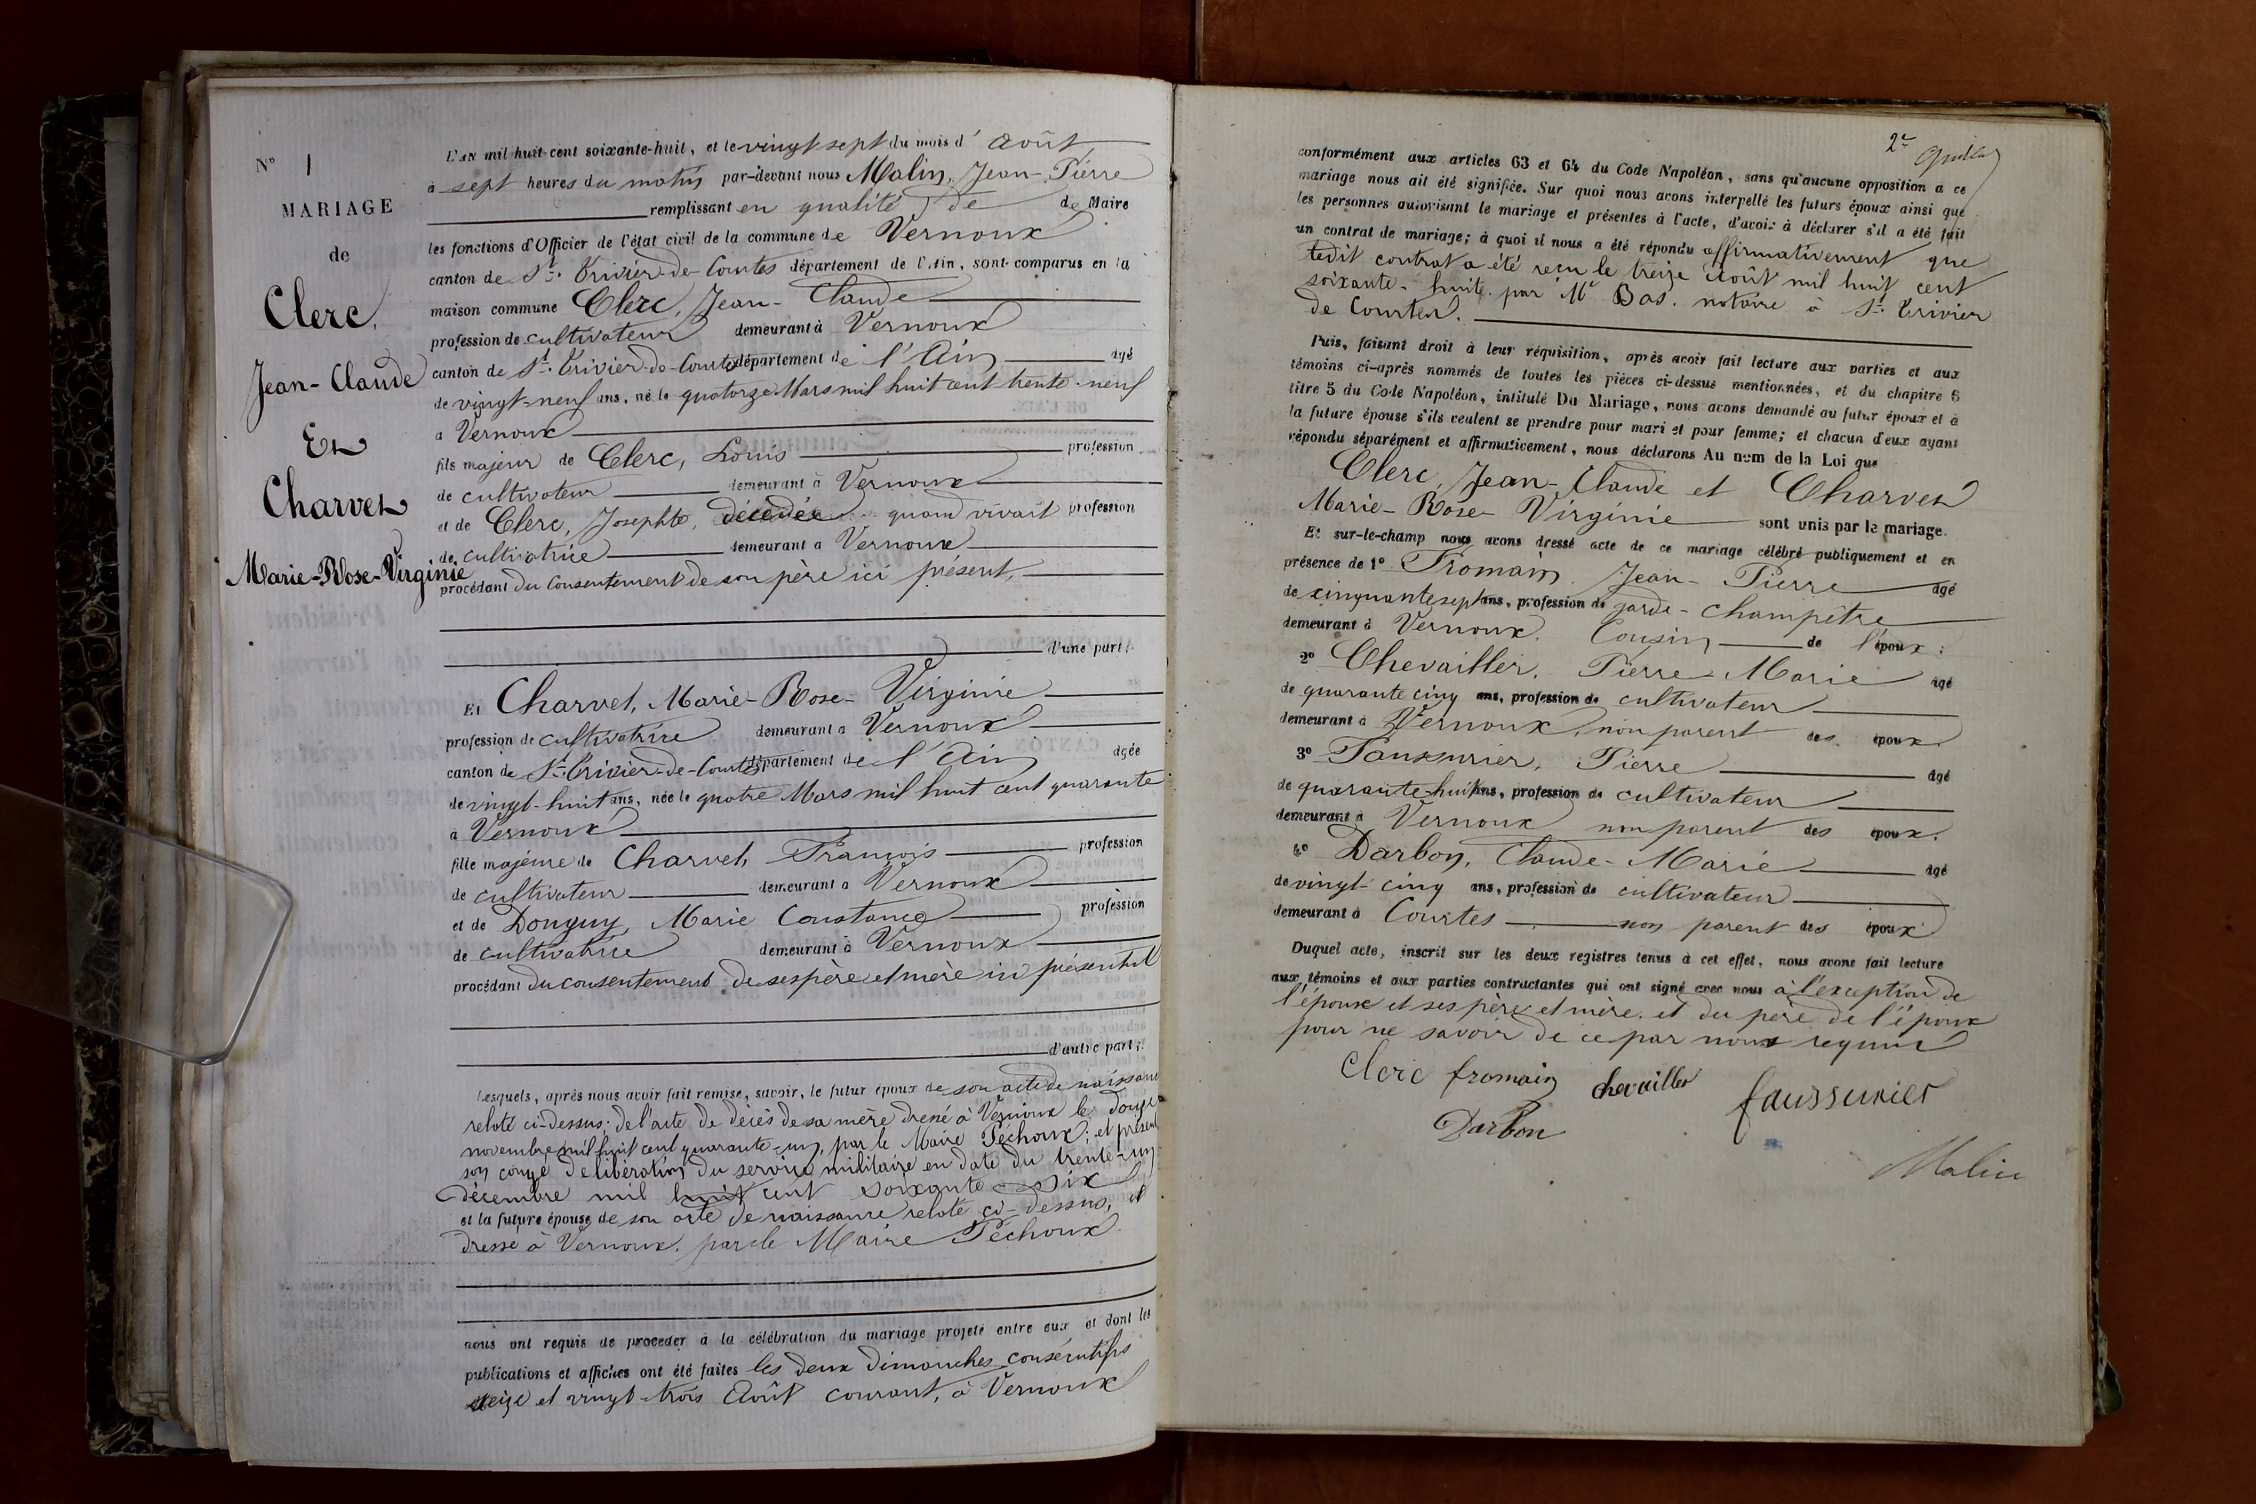 N° 1
MARIAGE
de
Clerc,
Jean-Claude
Et
Charvet
Marie-Rose-Virginie
L'AN mil huit cent soixante-huit, et le vingt sept du mois d' Août
à sept heures du matin par-devant nous Malin, Jean-Pierre
remplissant en qualité de de Maire
les fonctions d'Officier de l'état civil de la commune de Vernoux
canton de St. Trivier-de-Courtes département de l'Ain, sont comparus en la
maison commune Clerc, Jean-Claude
profession de cultivateur demeurant à Vernoux
canton de St. Trivier-de-Courtes département de l'Ain âgé
de vingt-neuf ans, né le quatorze Mars mil huit cent trente-neuf
à Vernoux
fils majeur de Clerc, Louis profession
de cultivateur demeurant à Vernoux
et de Clerc, Josephte, décédée quand vivait profession
de cultivatrice demeurant à Vernoux
procédant du consentement de son père ici présent,
d'une part;
Et Charvet, Marie-Rose-Virginie
profession de cultivatrice demeurant à Vernoux
canton de St. Trivier-de-Courtes département de l'Ain âgée
de vingt-huit ans, née le quatre Mars mil huit cent quarante
à Vernoux
fille majeure de Charvet, François profession
de cultivateur demeurant à Vernoux
et de Donguy, Marie Constance profession
de cultivatrice demeurant à Vernoux
procédant du consentement de ses père et mère ici présents
d'autre part;
Lesquels, après nous avoir fait remise, savoir, le futur époux de son acte de naissance
relaté ci-dessus; de l'acte de décès de sa mère dressé à Vernoux le douze
novembre mil huit cent quarante-un, par le Maire Péchoux; et présent
son congé de libération du service militaire en date du trente-un
décembre mil huit cent soixante six
et la future épouse de son acte de naissance relaté ci-dessus, et
dressé à Vernoux. par le Maire Péchoux
nous ont requis de procéder à la célébration du mariage projeté entre eux et dont les
publications et affiches ont été faites les deux dimanches consécutifs
seize et vingt-trois Août courant, à Vernoux
2e
conformément aux articles 63 et 64 du Code Napoléon, sans qu'aucune opposition a ce
mariage nous ait été signifiée. Sur quoi nous avons interpellé les futurs époux ainsi que
les personnes autorisant le mariage et présentes à l'acte, d'avoir à déclarer s'il a été fait
un contrat de mariage; à quoi il nous a été répondu affirmativement que
ledit contrat a été reçu le treize Août mil huit cent
soixante-huit par Me Bas. notaire à St. Trivier
de Courtes.
Puis, faisant droit à leur réquisition, après avoir fait lecture aux parties et aux
témoins ci-après nommés de toutes les pièces ci-dessus mentionnées, et du chapitre 6
titre 5 du Code Napoléon, intitulé Du Mariage, nous avons demandé au futur époux et à
la future épouse s'ils veulent se prendre pour mari et pour femme; et chacun d'eux ayant
répondu séparément et affirmativement, nous déclarons Au nom de la Loi que
Clerc, Jean-Claude et Charvet
Marie-Rose-Virginie sont unis par le mariage.
Et sur-le-champ nous avons dressé acte de ce mariage célébré publiquement et en
présence de 1° Fromain Jean-Pierre âgé
de cinquante sept ans, profession de garde-champêtre
demeurant à Vernoux. Cousin de l'époux;
2° Chevailler, Pierre-Marie âgé
de quarante cinq ans, profession de cultivateur
demeurant à Vernoux, non parent des époux.
3° Faussurier, Pierre âgé
de quarante-huit ans, profession de cultivateur
demeurant à Vernoux non parent des époux.
4° Darbon, Claude-Marie âgé
de vingt-cinq ans, profession de cultivateur
demeurant à Courtes non parent des époux
Duquel acte, inscrit sur les deux registres tenus à cet effet, nous avons fait lecture
aux témoins et aux parties contractantes qui ont signé avec nous à l'exception de
l'épouse et ses père et mère. et du père de l'époux
pour ne savoir de ce par nous requis
Clerc fromain chevailler faussurier
Darbon
Malin